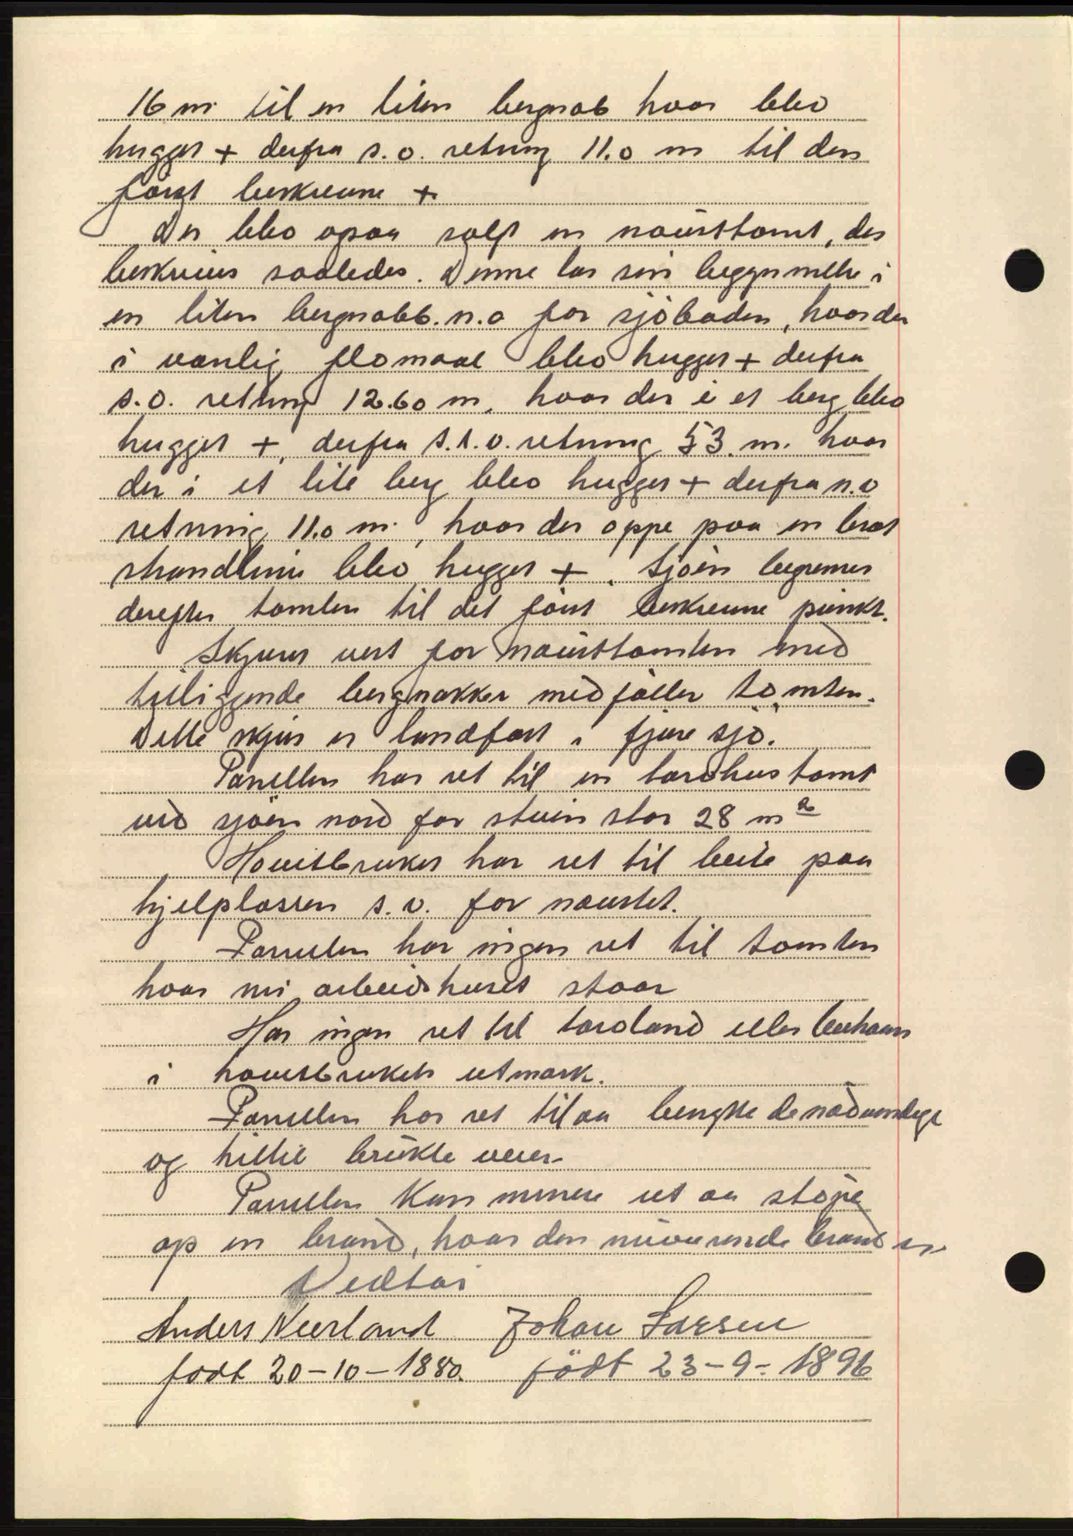 16 m til en liten bergnab hvor blev
hugget + derfra s.o. retning 11.0 m til den
først beskrevne +
Der blev ogsaa solgt en nausttomt, der
beskrives saaledes. Denne har sin begynnelse i
en liten bergnabb n.o for sjöboden, hvor der
i vanlig flomaal blev hugget + derfra
s.o. retning 12.60 m, hvor der i et berg blev
hugget +, derfra s.s.v. retning 53 m. hvor
der i et lite berg blev hugget + derfra n.o
retning 11.0 m., hvor der oppe paa en brat
strandlinie blev hugget +. Sjöen begrenser
derefter tomten til det först beskrevne punkt.
Skjeret vest for nausttomten med
tilliggende bergnakker medföller tomten.
Dette skjær er landfast i fjære sjö.
Parsellen har ret til en torvhustomt
ved sjöen nord for støen stor 28 m²
Hovedbruket har ret til beite paa
hjelplassen s.v. for naustet.
Parsellen har ingen ret til tomten
hvor nu arbeidshuset staar
Har ingen ret til torvland eller beitehavn
i hovedbrukets utmark.
Parsellen har ret til aa benytte de nødvendige
og hittil brukte veier.
Parsellen kan senere ret aa støpe
op en brønd, hvor den nuværende brønd er.
Vedtas
Anders Neerland Johan Larsen
født 20-10-1880. född 23-9-1896